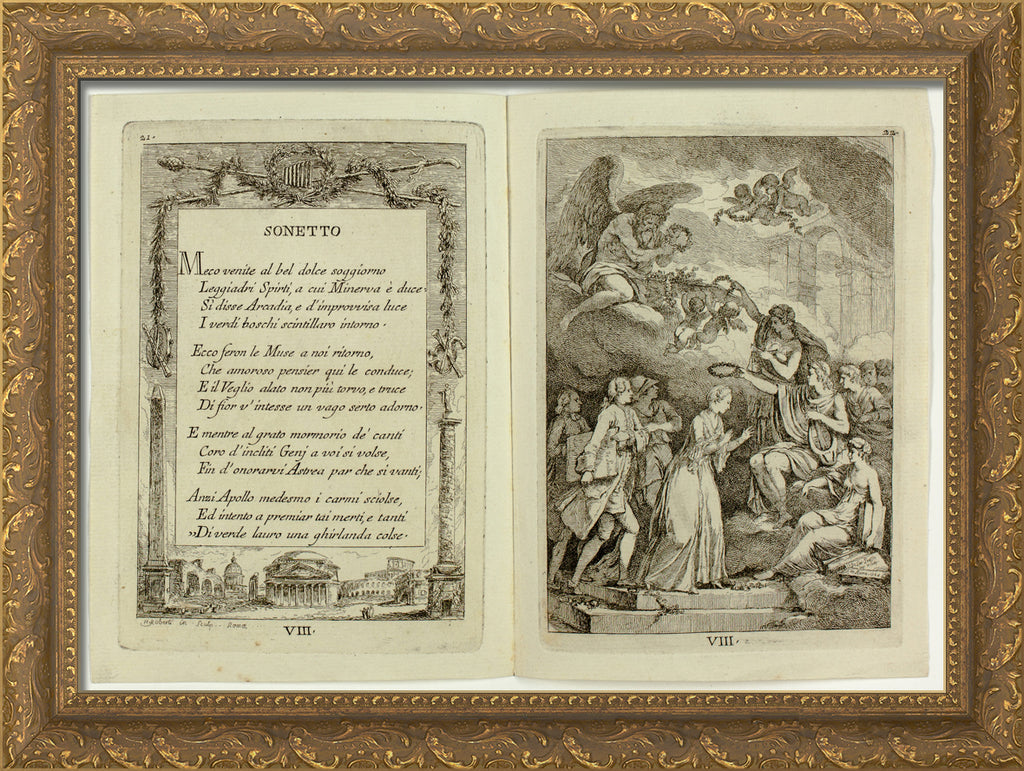 21.
SONETTO
Meco venite al bel dolce soggiorno
Leggiadri Spirti, a cui Minerva è duce:
Sì disse Arcadia, e d'improvvisa luce
I verdi boschi scintillaro intorno.
Ecco feron le Muse a noi ritorno,
Che amoroso pensier qui le conduce;
E il Veglio alato non più torvo, e truce
Di fior v'intesse un vago serto adorno.
E mentre al grato mormorio de' canti
Coro d'incliti Genj a voi si volse,
Fin d'onorarvi Astrea par che si vanti;
Anzi Apollo medesmo i carmi sciolse,
Ed intento a premiar tai merti, e tanti
"Di verde lauro una ghirlanda colse.
in Sculp. Roma
VIII.
22.
VIII.